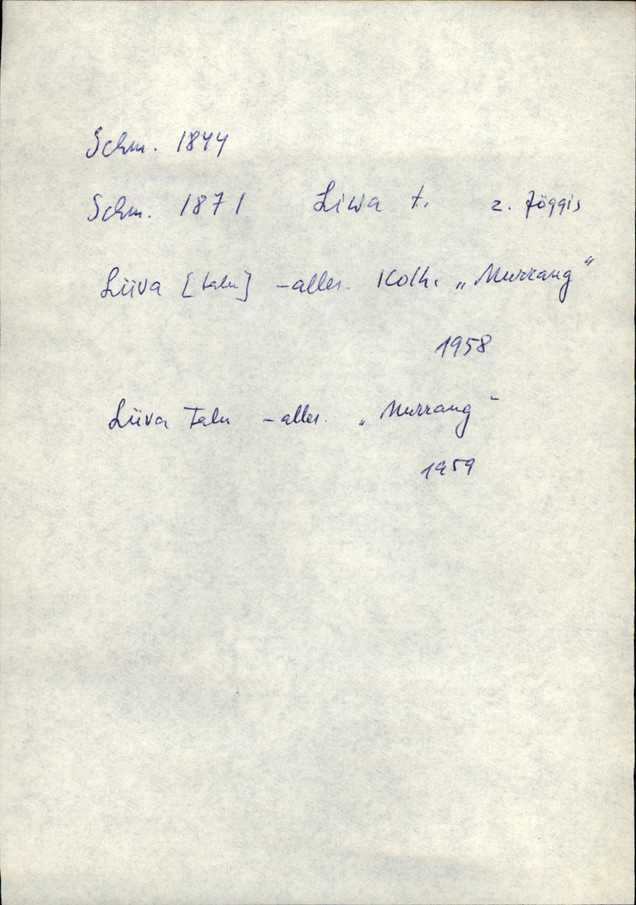 Schm. 1844
Schm. 1871 Liwa t. z. Jöggis
Liiva [talu] - aller. Kolh. „Murrang"
1958
Liiva Talu - aller. „Murrang"
1959